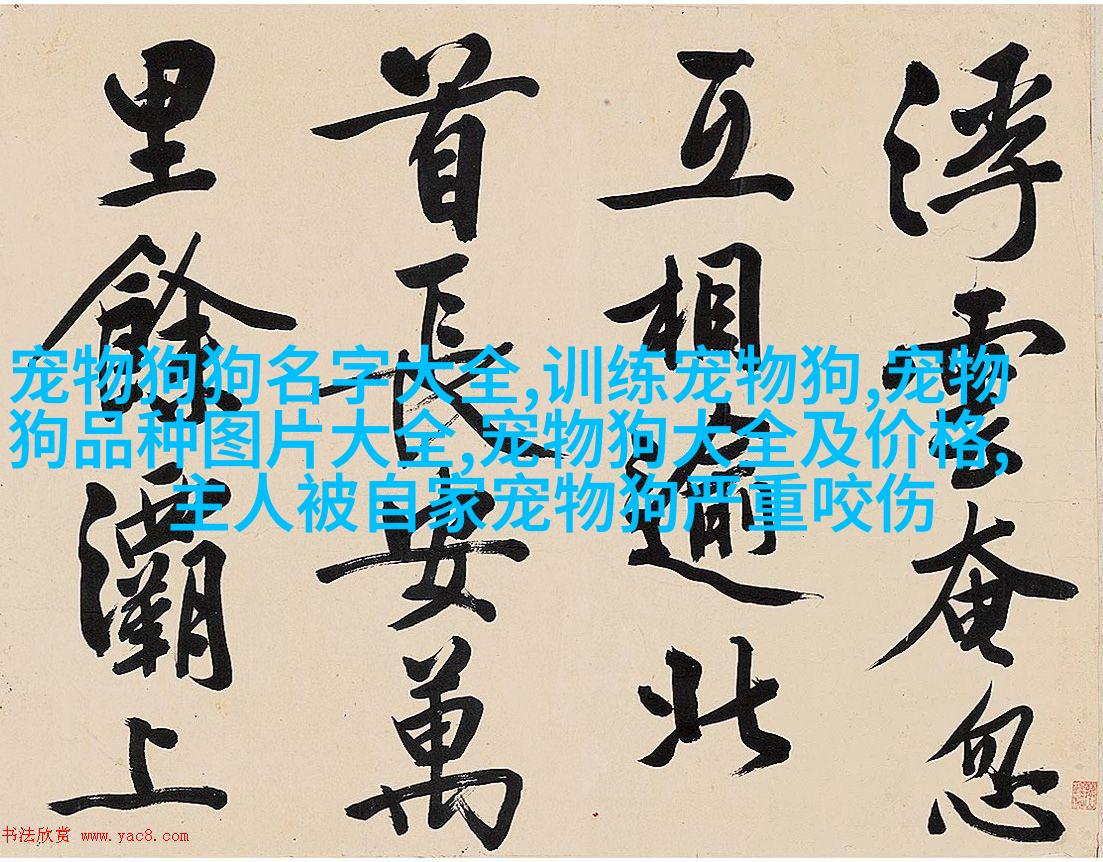 浮雲奄忽
互相踰北
首長安萬
里餘灞上
宠物狗狗名字大全,训练宠物狗,宠物
狗品种图片大全,宠物狗大全及价格,
主人被自家宠物狗严重咬伤
书法欣赏 www.yac8.com